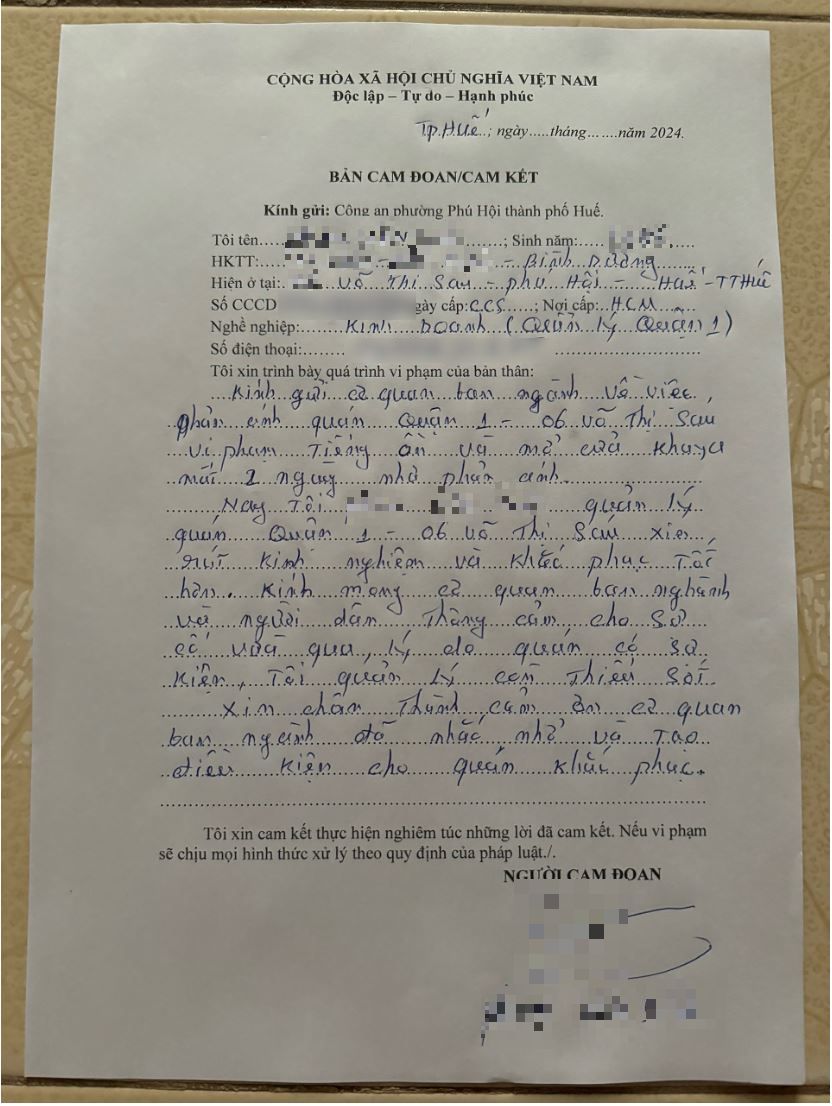 CỘNG HÒA XÃ HỘI CHỦ NGHĨA VIỆT NAM
Độc lập – Tự do – Hạnh phúc
Tp.Huế..; ngày.....tháng.......năm 2024.
BẢN CAM ĐOAN/CAM KẾT
Kính gửi: Công an phường Phú Hội thành phố Huế.
Tôi tên.... ; Sinh năm:....
HKTT: - Bình Dương
Hiện ở tại: Võ Thị Sau - phú Hội - Huế - TT Huế
Số CCCD gày cấp: CCS ; Nơi cấp: H.C.M
Nghề nghiệp: Kinh Doanh (Quản lý Quận 1)
Số điện thoại:........
Tôi xin trình bày quá trình vi phạm của bản thân:
Kính gửi cơ quan ban ngành về việc,
phản ánh quán Quận 1 - 06 võ Thị Sau
vi phạm Tiếng ồn và mở cửa khuya
mất 2 người nhà phản ánh.
Nay Tôi quản lý
quán Quận 1 - 06 võ Thị Sáu xin
rút kinh nghiệm và khắc phục Tốt
hơn. Kính mong cơ quan ban nghành
và người dân Thông cảm cho sự
cố vừa qua, lý do quán có sự
kiện, Tôi quản lý còn Thiếu sót.
Xin chân Thành cảm ơn cơ quan
ban ngành đã nhắc nhở và Tạo
điều kiện cho quán khắc phục.
Tôi xin cam kết thực hiện nghiêm túc những lời đã cam kết. Nếu vi phạm
sẽ chịu mọi hình thức xử lý theo quy định của pháp luật./.
NGƯỜI CAM ĐOAN